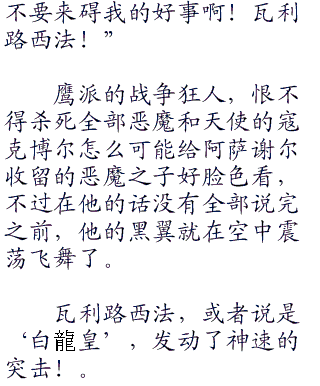 不要来碍我的好事啊！瓦利
路西法！”
鹰派的战争狂人，恨不
得杀死全部恶魔和天使的寇
克博尔怎么可能给阿萨谢尔
收留的恶魔之子好脸色看，
不过在他的话没有全部说完
之前，他的黑翼就在空中震
荡飞舞了。
瓦利路西法，或者说是
‘白龍皇’，发动了神速的
突击！。